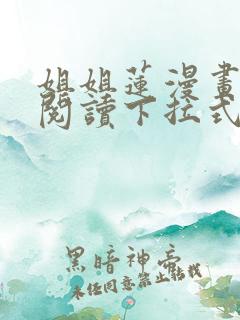 姐姐蓮漫畫
閱讀下拉式
黑暗神帝
未经同意禁止转载